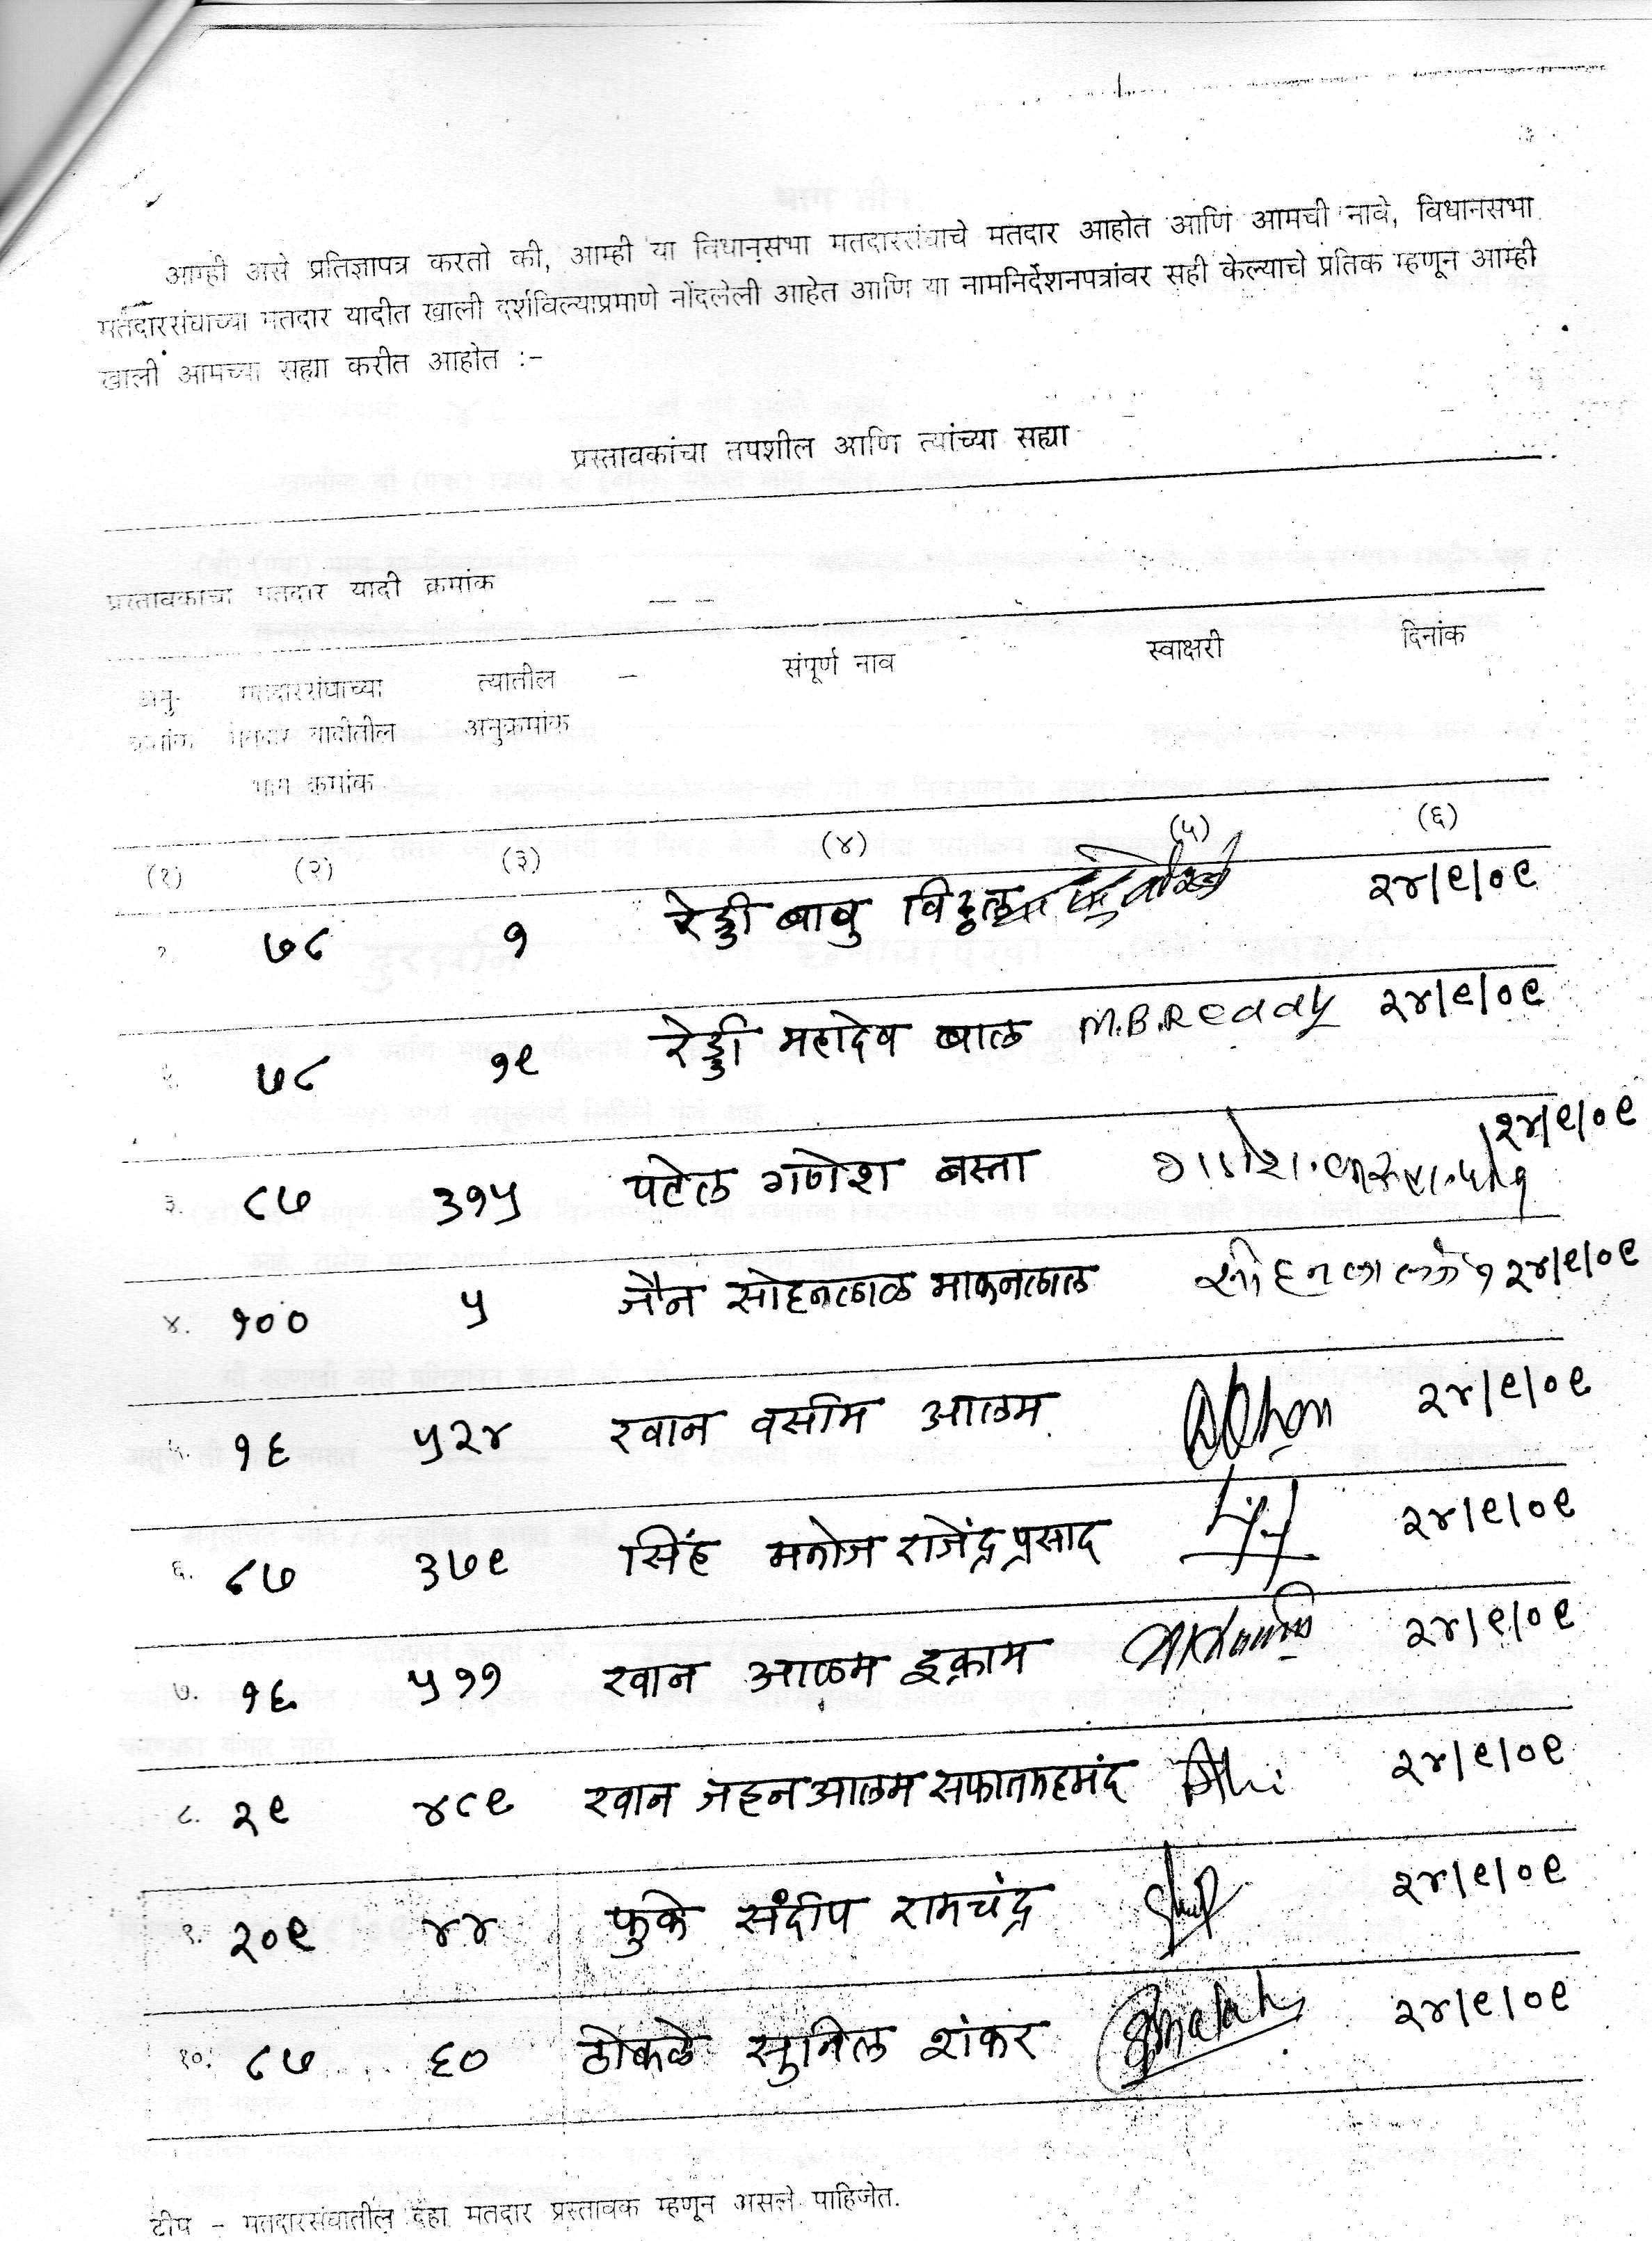 आम्ही असे प्रतिज्ञापत्र करतो की, आम्ही या विधानसभा मतदारसंघाचे मतदार आहोत आणि आमची नावे, विधानसभा
मतदारसंघाच्या मतदार यादीत खाली दर्शविल्याप्रमाणे नोंदलेली आहेत आणि या नामनिर्देशनपत्रांवर सही केल्याचे प्रतिक म्हणून आम्ही
खाली आमच्या सह्या करीत आहोत :-
प्रस्तावकांचा तपशील आणि त्यांच्या सह्या
प्रस्तावकाचा मतदार यादी क्रमांक
अनु- मतदारसंघाच्या त्यातील – संपूर्ण नाव स्वाक्षरी दिनांक
क्रमांक मतदार यादीतील अनुक्रमांक
भाग क्रमांक
(१) (२) (३) (४) (५) (६)
१. ७८ १ रेड्डी बाबु विठ्ठल २४/९/०९
२. ७८ १९ रेड्डी महादेव बाळ M.B.Reddy २४/९/०९
३. ८७ ३१५ पटेल गणेश बस्ता २४/९/०९
४. १०० ५ जैन सोहनलाल माकनलाल सोहनलाल जैन २४/९/०९
५. १६ ५२४ खान वसीम आलम २४/९/०९
६. ८७ ३७९ सिंह मनोज राजेंद्रप्रसाद २४/९/०९
७. १६ ५११ खान आलम इक्राम २४/९/०९
८. २९ ४८९ खान जहन आलम २४/९/०९
९. २०९ ४४ फुके संदीप रामचंद्र २४/९/०९
१०. ८७ ६० ठोकळे सुनिल शंकर २४/९/०९
टीप – मतदारसंघातील दहा मतदार प्रस्तावक म्हणून असले पाहिजेत.